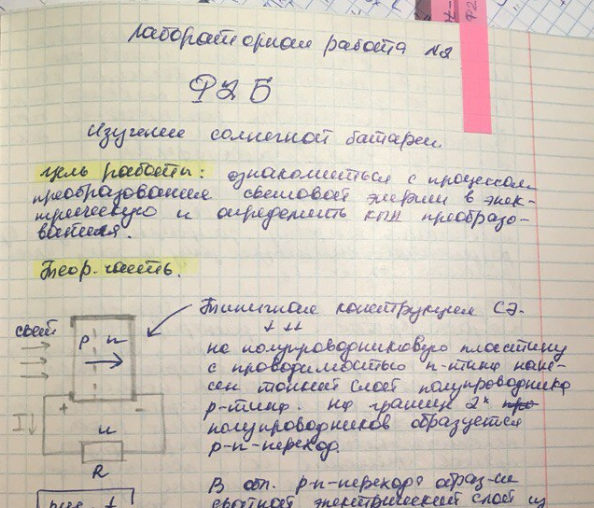 Лабораторная работа №2
Ф2Б
Изучение солнечной батареи.
Цель работы: ознакомиться с процессом
преобразования световой энергии в элек-
трическую и определить кпд преобразо-
вателя.
Теор. часть.
Типичная конструкция СЭ.
+ ++
на полупроводниковую пластину
с проводимостью n-типа нане-
сен тонкий слой полупроводника
p-типа. На границе 2х
полупроводников образуется
p-n-переход.
свет
p n
+ -
I
u
R
В обл. p-n-перехода образ-ся
двойной электрический слой из
рис. 1